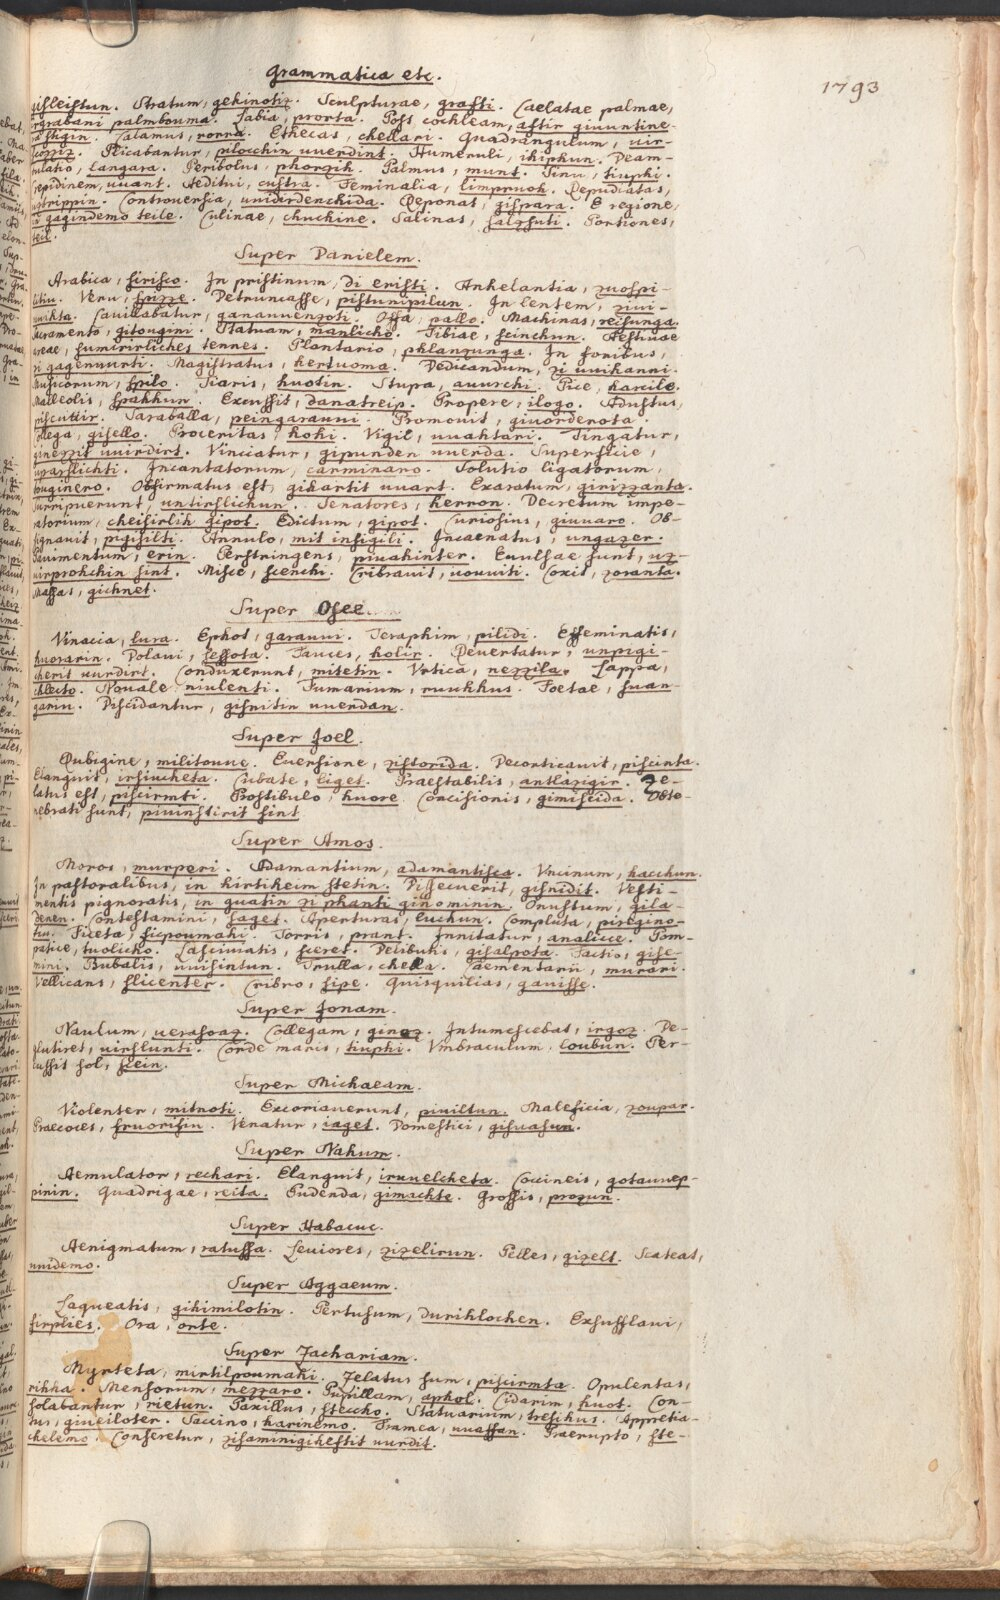 Grammatica etc.
1793
gisleistun. Stratum, gekinotiz. Sculpturae, grafti. Caelatae palmae,
ergrabani palmbouma. Labia, prorta. Post cochleam, aftir giuuntine-
Calamus, rorra. Ethecas, chellari. Quadrangulum, uir-
Plicabantur, pilocchin uuerdint. Humeruli, ihiphun. Deam-
bulatio, Langara. Peribolus, phorzih. Palmus, munt. Sinu, tiuphi.
Crepidinem, uuant. Aeditui, custra. Feminalia, limpruoh. Repudiatas,
Controuersia, unidirdenchida. Reponat, gispara. E regione,
gagindemo teile. Culinae, chuchine. Salinas, salzsuti. Portiones,
teil.
Super Danielem.
Arabica, sirisco. In pristinum, di eristi. Anhelantia, zuospi-
Veru, spizze. Detruncasse, pistunipilun. In lentem,
Cauillabatur, ganauuenzoti. Offa, pallo. Machinas, reisunga.
Sacramento, gitougini. Statuam, manlicho. Tibiae, seinchun. Aestiuae
areae, sumirirliches tennes. Plantario, phlanzunga. In foribus,
zi gagenuurti. Magistratus, hertuoma. Dedicandum, zi uuihanni.
Musicorum, spilo. Tiaris, huotin. Stupa, auurchi. Pice, harcile.
Malleolis, spahhun. Excussit, danatreip. Propere, ilogo. Adustus,
Saraballa, peingarauui. Promouit, giuorderota.
Collega, gisello. Proceritas, hohi. Vigil, uuahtari. Tingatur,
ginezzit uuirdirt. Vinciatur, gipunden uuerda. Superficie,
uparslichti. Incantatorum, carminaro. Solutio ligatorum,
touginero. Obfirmatus est, gihartit uuart. Exaratum, girizzanta.
Surripuerunt, untirslichun. Senatores, herron. Decretum impe-
ratorium, cheisirlih gipot. Edictum, gipot. Curiosius, giuuaro. Ob-
signauit, pigisilti. Annulo, mit insigili. Incaenatus, ungazer.
Pauimentum, erin. Perstringens, piuuahinter. Euulsae sunt, uz-
uirprohchin sint. Misce, scenchi. Cribrauit, uouuiti. Coxit, zoranta.
Massas, gichnet.
Super Osee.
Vinacia, lura. Ephot, garauui. Teraphim, pilidi. Effeminatis,
huorarin. Dolaui, lessota. Fauces, holir. Deuertatur, unpigi-
cherit uurdirt. Conduxerunt, mitetin. Vrtica, nezzila. Lappa,
chlecto. Nouale, niulenti. Fumarium, ruuhhus. Foetae, suan-
garin. Discidantur, gisnitin uuerdan.
Super Joel.
Rubigine, militouue. Euersione, zistorida. Decorticauit, piscinta.
Elanguit, irsiucheta. Cubate, liget. Praestabilis, antlazigir. Ze-
latus est, piscirmti. Prostibulo, huore. Concisionis, gimiscida. Obte-
nebrati sunt, piuinstirit sint
Super Amos.
Moros, murperi. Adamantium, adamantisca. Vncinum, hacchun.
In pastoralibus, in hirtiheim stetin. Dissecuerit, gisnidit. Vesti-
mentis pignoratis, in quatin zi phanti ginominin. Onustum, gila-
denen. Contestamini, saget. Aperturas, luchun. Compluta, piregino-
tiu. Ficeta, ficpoumahi. Torris, prant. Innitatur, analicce. Pom-
patice, tuolicho. Lasciuiatis, sceret. Delibutis, gisalpota. Factio, gise-
mini. Bubalis, uuisintun. Trulla, chella. Caementarii, murari.
Vellicans, slicenter. Cribro, sipe. Quisquilias, gauisse.
Super Jonam.
Naulum, uerascaz. Collegam, ginoz. Intumescebat, irgoz. De-
glutiret, uirslunti. Corde maris, tiuphi. Vmbraculum. loubun. Per-
cussit sol, scein.
Super Michaeam.
Violenter, mitnoti. Excoriauerunt, piuiltun. Maleficia, zoupar.
Praecoces, fruorisin. Venatur, iaget. Domestici, gisuasun.
Super Nahum.
Aemulator, rechari. Elanguit, iruuelcheta. Coccineis, gotauuep-
pinin. Quadrigae, reita. Pudenda, gimachte. Grossis, prozun.
Super Habacuc.
Aenigmatum, ratussa. Leuiores, zizelirun. Pelles, gizelt. Scateat,
uuidemo.
Super Aggaeum.
Laqueatis, gihimilotin. Pertusum, durihlochen. Exsufflaui,
firplies. Ora, orte.
Super Zachariam.
Myrteta, mirtilpoumahi. Zelatus sum, piscirmta. Opulentas,
rihha. Mensorum, mezzaro. Pupillam, aphol. Cidarim, huot. Con-
solabantur, rietun. Paxillus, steccho. Statuarium, tresihus. Appretia-
tus, giueiloter. Saccino, harinemo. Framea, uuaffan. Praerupto, ste-
chelemo. Conseretur, zisaminigiheftit uurdit.